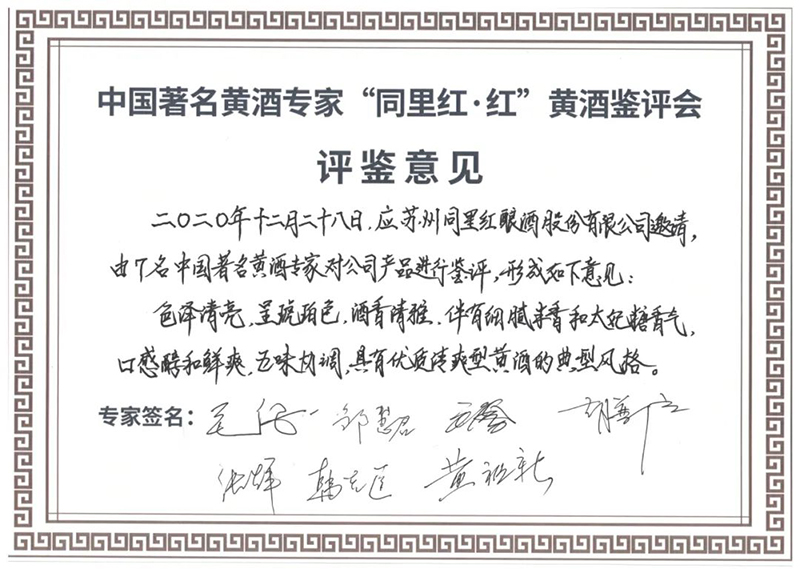 中国著名黄酒专家“同里红·红”黄酒鉴评会
评鉴意见
二〇二〇年十二月二十八日，应苏州同里红酿酒股份有限公司邀请，
由7名中国著名黄酒专家对公司产品进行鉴评，形成如下意见：
色泽清亮，呈琥珀色，酒香清雅，伴有细腻米香和太妃糖香气，
口感醇和鲜爽，五味协调，具有优质清爽型黄酒的典型风格。
专家签名：